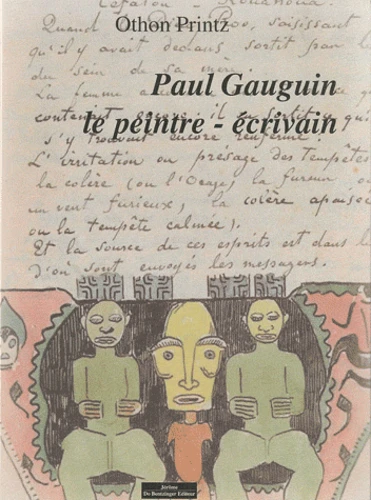 Othon Printz
Paul Gauguin
le peintre - écrivain
Quand Dieu Roo, saisissant
qu'il y avait dedans, sortit par le
du sein de sa mère
La femme a
contenait encore, il en sortit ce qui
s'y trouvait encore renfermé
L'irritation ou présage des Tempêtes
la colère (ou l'Orage) la fureur ou
un vent furieux, la colère apaisée
ou la tempête calmée).
Et la source de ces esprits est dans le
D'où sont envoyés les messagers.
Jérôme
Do Bentzinger Editeur